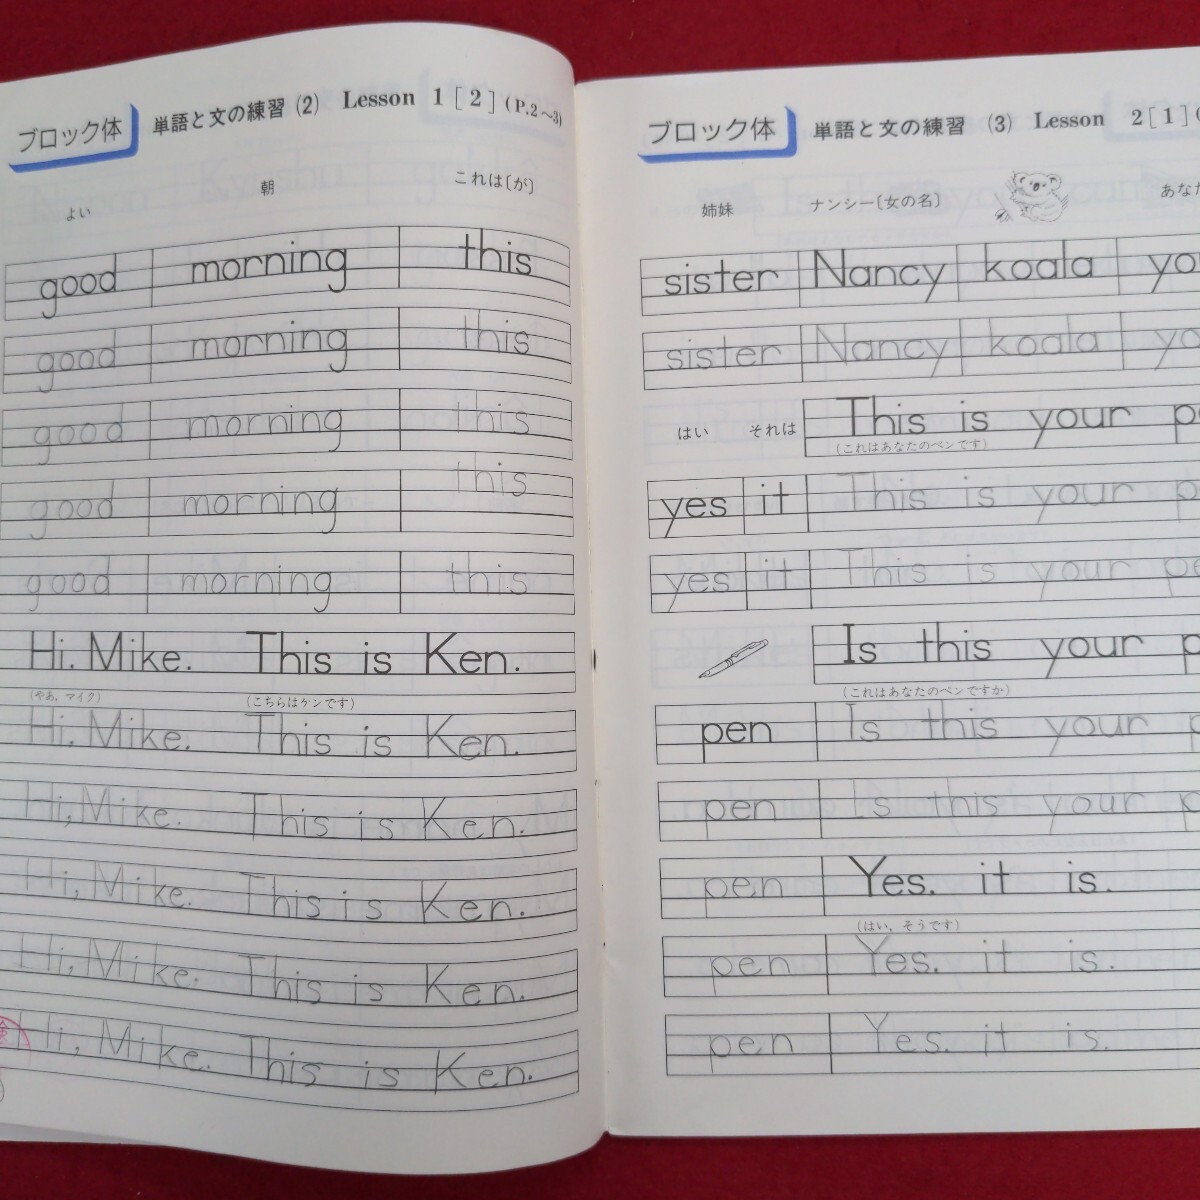 ブロック体 単語と文の練習 (2) Lesson 1 [2] (P.2～3)
よい 朝 これは〔が〕
good morning this
good morning this
good morning this
good morning this
good morning this
Hi. Mike. This is Ken.
(やあ，マイク) (こちらはケンです)
Hi. Mike. This is Ken.
Hi, Mike. This is Ken.
Hi, Mike. This is Ken.
Hi, Mike. This is Ken.
Hi, Mike. This is Ken.
ブロック体 単語と文の練習 (3) Lesson 2 [1] (
姉妹 ナンシー〔女の名〕 あなた
sister Nancy koala yo
sister Nancy koala yo
はい それは This is your p
(これはあなたのペンです)
yes it This is your p
yes it This is your pe
Is this your p
(これはあなたのペンですか)
pen Is this your p
pen Is this your p
pen Yes. it is.
(はい，そうです)
pen Yes. it is.
pen Yes. it is.